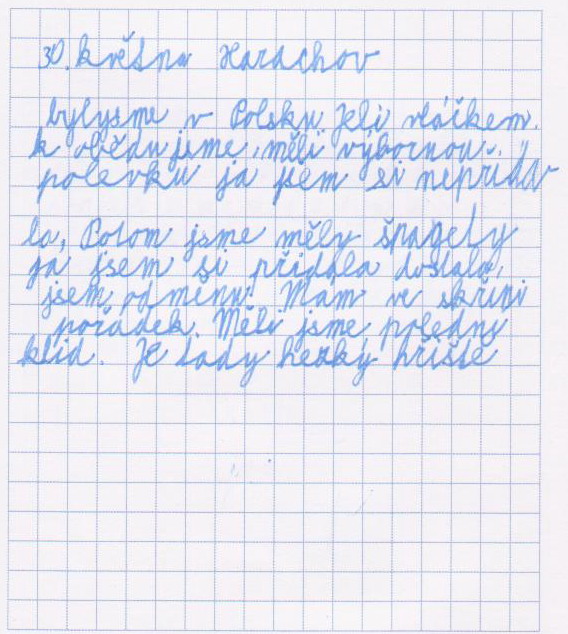 30. května Harachov
bylysme v Polsku Jeli vláčkem.
k obědu jsme měli výbornou
polevku ja jsem si nepřidáv
la, Potom jsme měly špagety
já jsem si přidala dostala
jsem odměnu! Mám ve skříni
pořádek. Měli jsme polední
klid. Je tady hezký hřiště